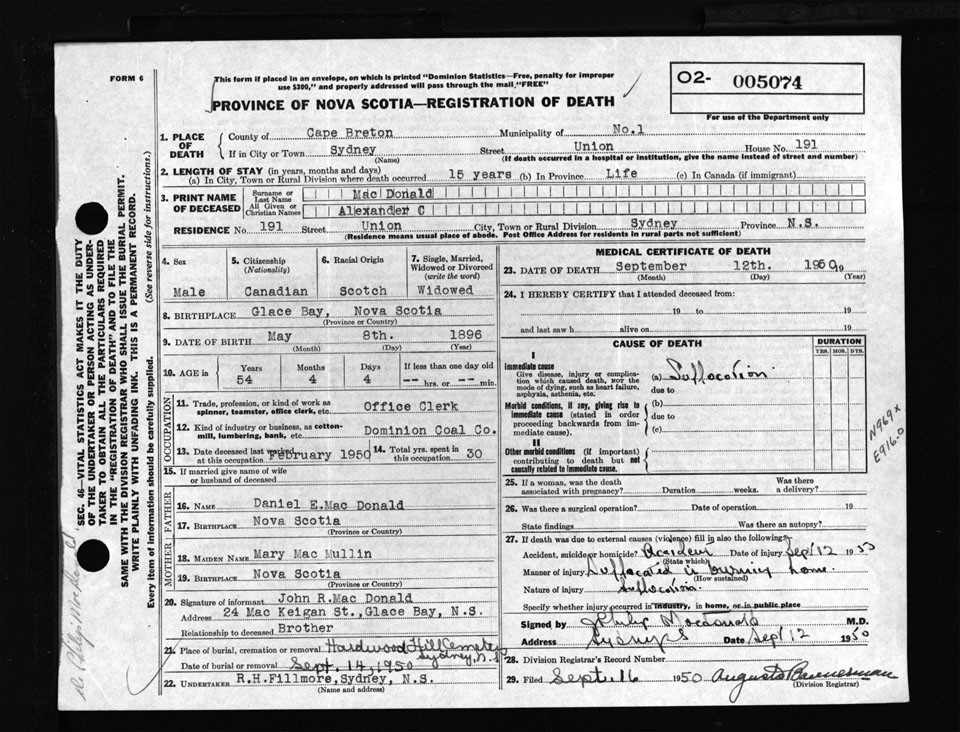 FORM 6
This form if placed in an envelope, on which is printed "Dominion Statistics—Free, penalty for improper
use $300," and properly addressed will pass through the mail "FREE"
PROVINCE OF NOVA SCOTIA—REGISTRATION OF DEATH
O2- 005074
For use of the Department only
1. PLACE OF DEATH County of Cape Breton Municipality of No.1
If in City or Town Sydney Street Union House No. 191
(Name) (If death occurred in a hospital or institution, give the name instead of street and number)
2. LENGTH OF STAY (in years, months and days)
(a) In City, Town or Rural Division where death occurred 15 years (b) In Province Life (c) In Canada (if immigrant)
3. PRINT NAME OF DECEASED Surname or Last Name Mac Donald
All Given or Christian Names Alexander C
RESIDENCE No. 191 Street Union City, Town or Rural Division Sydney Province N.S.
(Residence means usual place of abode. Post Office Address for residents in rural parts not sufficient)
4. Sex 5. Citizenship (Nationality) 6. Racial Origin 7. Single, Married, Widowed or Divorced (write the word)
Male Canadian Scotch Widowed
8. BIRTHPLACE Glace Bay, Nova Scotia
(Province or Country)
9. DATE OF BIRTH May 8th. 1896
(Month) (Day) (Year)
10. AGE in Years Months Days If less than one day old
54 4 4 -- hrs. or -- min.
OCCUPATION
11. Trade, profession, or kind of work as spinner, teamster, office clerk, etc. Office Clerk
12. Kind of industry or business, as cotton-mill, lumbering, bank, etc. Dominion Coal Co.
13. Date deceased last worked at this occupation February 1950 14. Total yrs. spent in this occupation 30
15. If married give name of wife
or husband of deceased
FATHER
16. NAME Daniel E.Mac Donald
17. BIRTHPLACE Nova Scotia
(Province or Country)
MOTHER
18. MAIDEN NAME Mary Mac Mullin
19. BIRTHPLACE Nova Scotia
(Province or Country)
20. Signature of informant John R.Mac Donald
Address 24 Mac Keigan St., Glace Bay, N.S.
Relationship to deceased Brother
21. Place of burial, cremation or removal Hardwood Hill Cemetery Sydney, N.S.
Date of burial or removal Sept. 14, 1950
22. UNDERTAKER R.H.Fillmore, Sydney, N.S.
(Name and address)
MEDICAL CERTIFICATE OF DEATH
23. DATE OF DEATH September 12th. 1950 19
(Month) (Day) (Year)
24. I HEREBY CERTIFY that I attended deceased from:
19 to 19
and last saw h alive on 19
CAUSE OF DEATH DURATION
YRS. MOS. DYS.
I
Immediate cause
Give disease, injury or complication which caused death, NOT the mode of dying, such as heart failure, asphyxia, asthenia, etc.
(a) Suffocation
due to
Morbid conditions, if any, giving rise to immediate cause (stated in order proceeding backwards from immediate cause).
(b)
due to
(c)
II
Other morbid conditions (if important) contributing to death but not causally related to immediate cause.
N969x
E916-0
25. If a woman, was the death associated with pregnancy? Duration weeks. Was there a delivery?
26. Was there a surgical operation? Date of operation 19
State findings Was there an autopsy?
27. If death was due to external causes (violence) fill in also the following:
Accident, suicide or homicide? Accident Date of injury Sept 12 19
(State which)
Manner of injury Suffocated in burning home.
(How sustained)
Nature of injury Suffocation.
Specify whether injury occurred in industry, in home, or in public place
Signed by Philip Macdonald M.D.
Address Sydney NS Date Sept 12 1950
28. Division Registrar's Record Number
29. Filed Sept. 16 1950 Augusta Bannerman
(Division Registrar)
SEC. 46—VITAL STATISTICS ACT MAKES IT THE DUTY
OF THE UNDERTAKER OR PERSON ACTING AS UNDER-
TAKER TO OBTAIN ALL THE PARTICULARS REQUIRED
IN THE "REGISTRATION OF DEATH" AND TO FILE THE
SAME WITH THE DIVISION REGISTRAR WHO SHALL ISSUE THE BURIAL PERMIT.
WRITE PLAINLY WITH UNFADING INK. THIS IS A PERMANENT RECORD.
Every item of information should be carefully supplied. (See reverse side for instructions.)